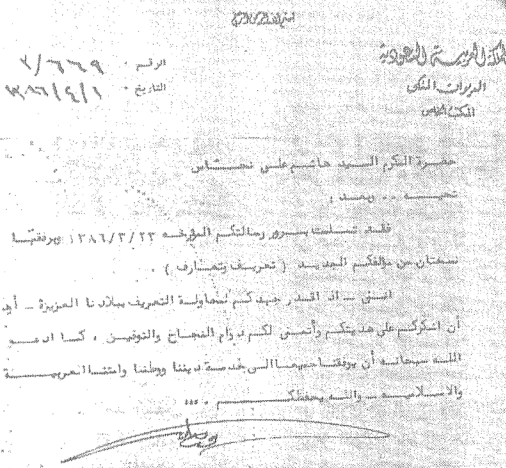 المملكة العربية السعودية
الديوان الملكي
المكتب الخاص
الرقم ٣/٦٦٩
التاريخ ١٣٨٦/٤/١
حضرة المكرم السيد هاشم علي نحاس
تحية .. وبعد :
فقد تسلمت بسرور رسالتكم المؤرخة ١٣٨٦/٣/٢٣ وبرفقتها
نسختان من مؤلفكم الجديد ( تعريف وتعارف ) .
انني ــ اذ اقدر جهدكم لمحاولة التعريف ببلادنا العزيزة ــ أود
أن اشكركم على هديتكم وأتمنى لكم دوام النجاح والتوفيق ، كما ادعو
الله سبحانه أن يوفقنا جميعا الى خدمة ديننا ووطننا وامتنا العربية
والاسلامية ــ والله يحفظكم . ،،،